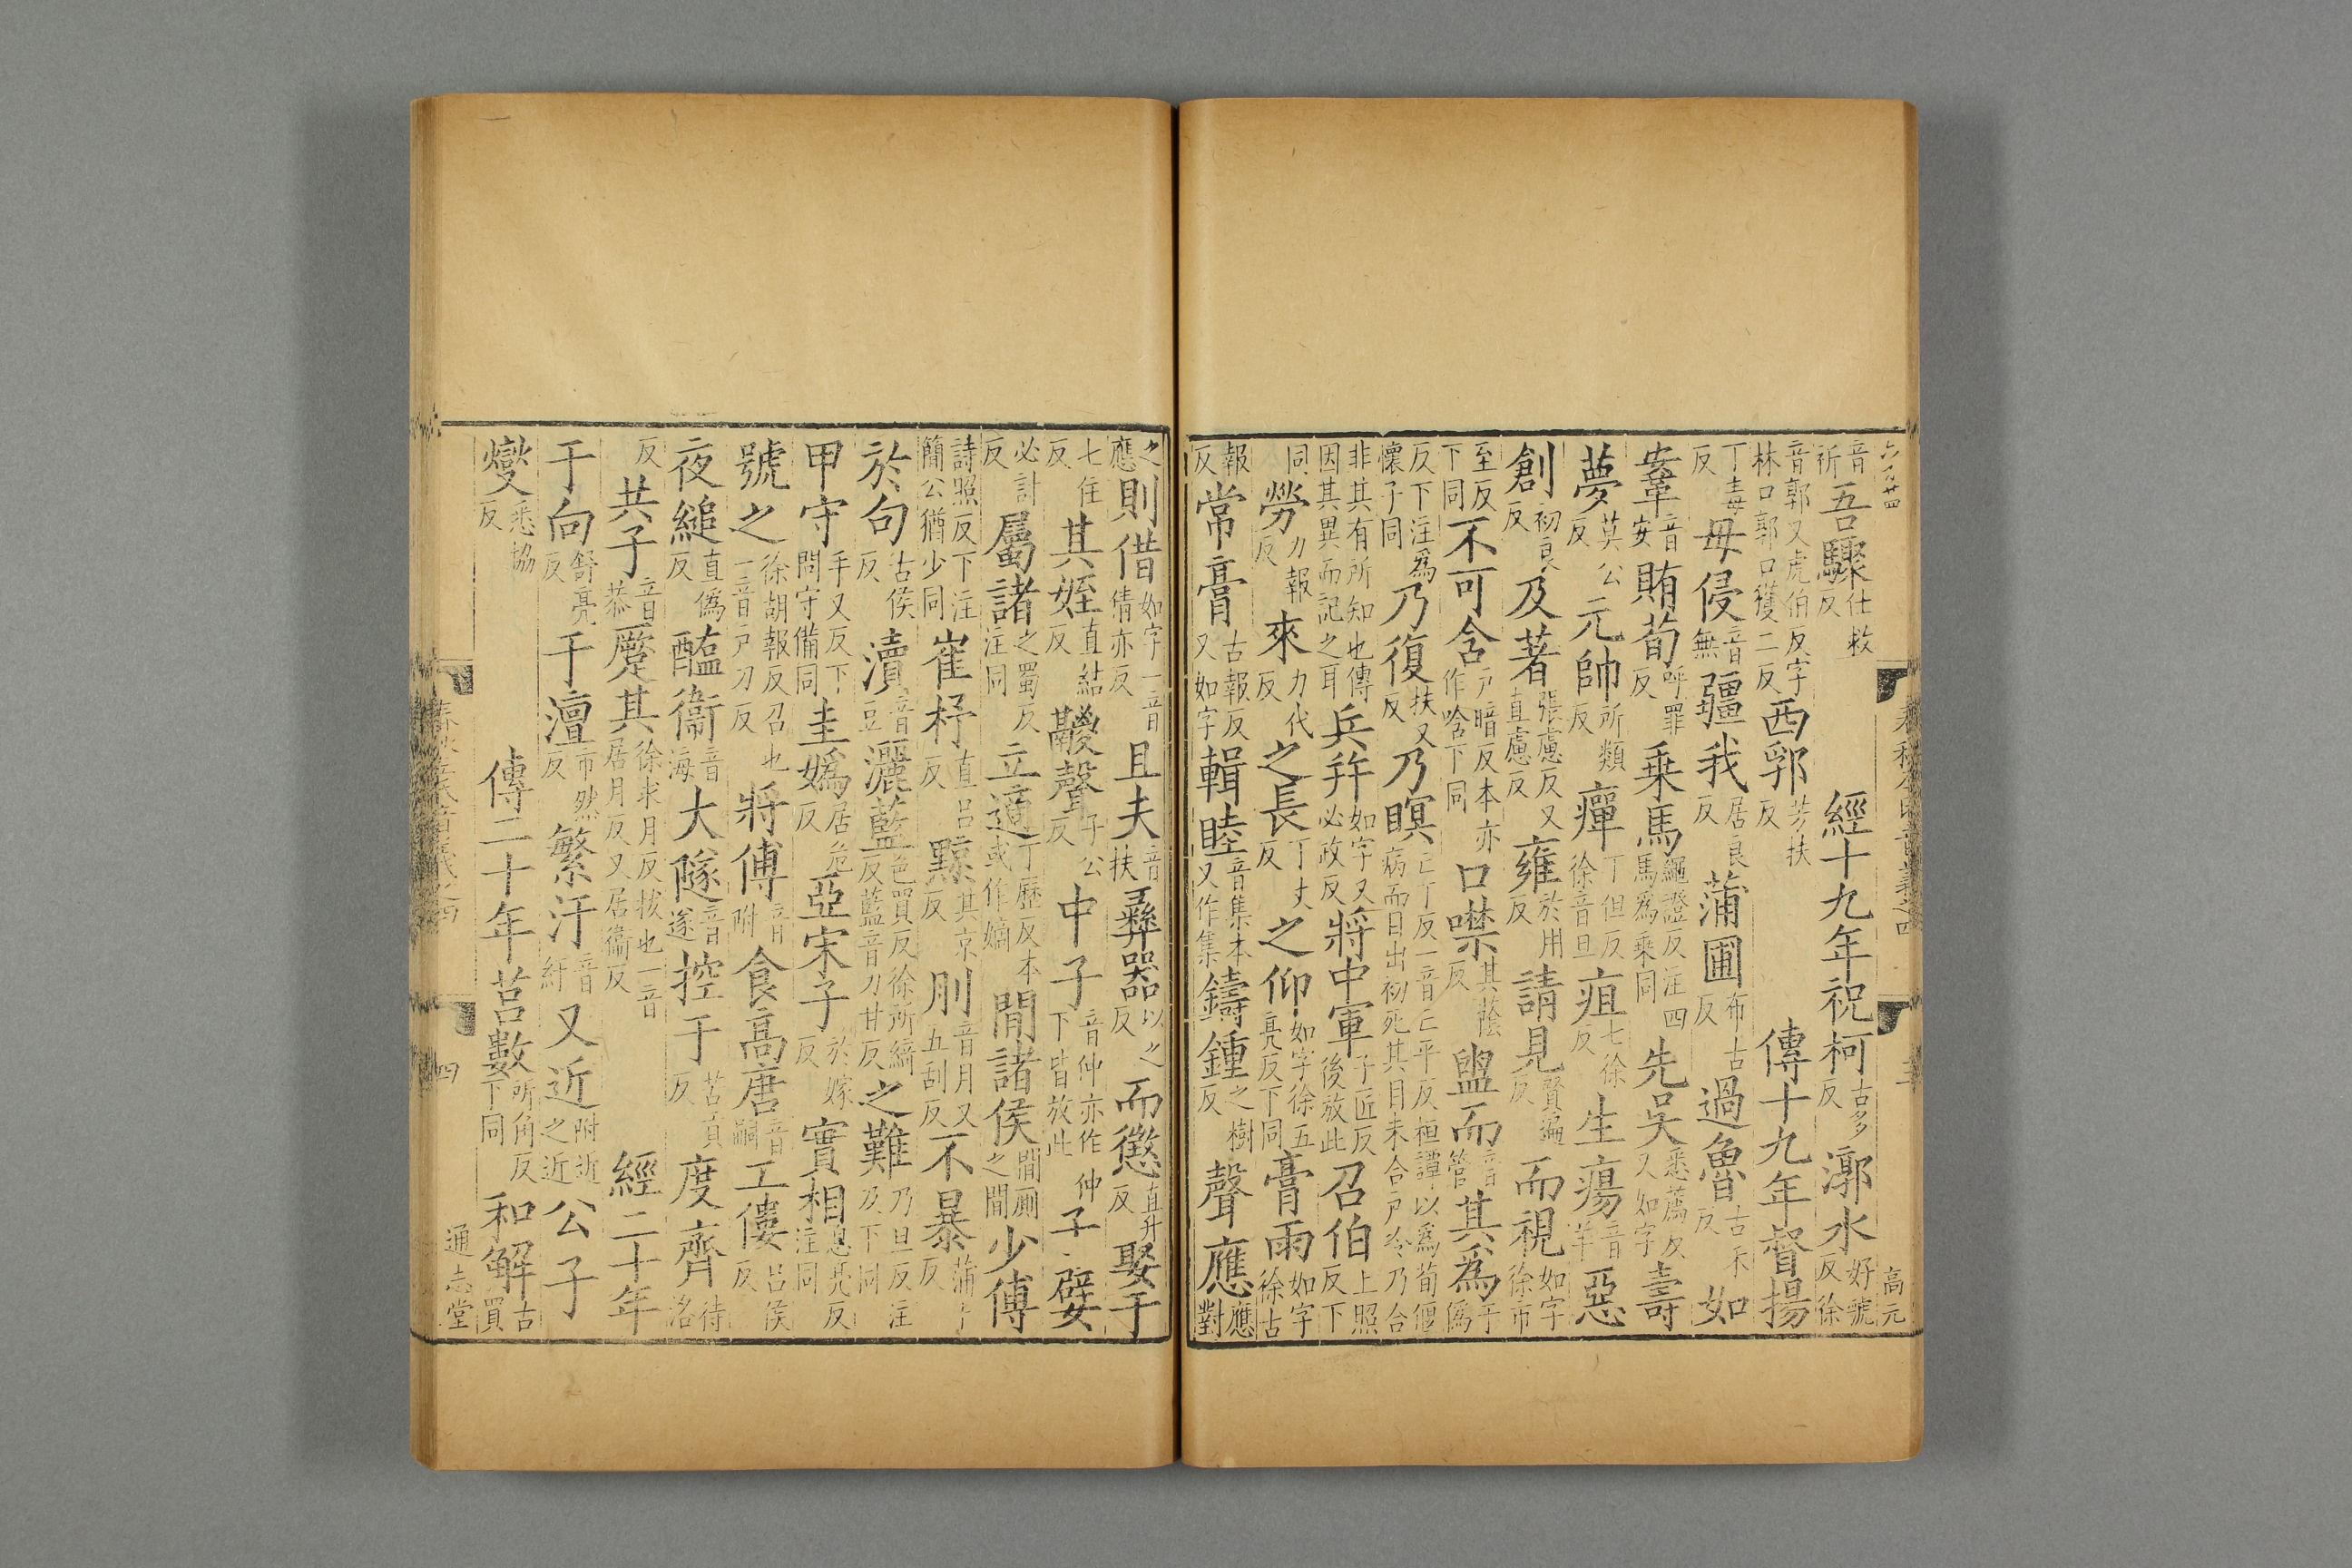 音祈吾驟仕救反　經十九年祝柯古多反漷水好虢反徐
音郭又虎伯反字林口郭口獲二反西郛芳扶反　傳十九年督揚
丁毒反毋侵音無疆我居良反蒲圃布古反過魯古禾反如
鞌音安賄荀呼罪反乗馬繩證反注四馬爲乗同先吳悉薦反又如字壽
夢莫公反元帥所類反癉丁但反徐音旦疽七徐反生瘍音羊惡
創初良反及著張慮反又直慮反雍於用反請見賢遍反而視如字徐市
至反下同不可含戸暗反本亦作唅下同口噤其蔭反盥而音管其爲于僞
反下注爲懷子同乃復扶又反乃瞑亡丁反一音亡平反桓譚以爲荀偃病而目出初死其目未合尸冷乃合
非其有所知也傳因其異而記之耳兵幷如字又必政反將中軍子匠反後放此召伯上照反下
同勞力報反來力代反之長丁丈反之仰如字徐五亮反下同膏雨如字徐古
報反常膏古報反又如字輯睦音集本又作集鑄鍾之樹反聲應應對
之應則借如字一音情亦反且夫音扶彝器以之反而懲直升反娶于
七住反其姪直結反鬷聲子公反中子音仲亦作仲下皆放此仲子嬖
必計反屬諸之蜀反注同立適丁歷反本或作嫡閒諸侯閒厠之閒少傅
詩照反下注簡公猶少同崔杼直呂反黥其京反刖音月又五刮反不暴蒲卜反
於句古侯反瀆音豆灑藍色買反徐所綺反藍音力甘反之難乃旦反注及下同
甲守手又反下問守備同圭嬀居危反亞宋子於嫁反實相息亮反注同
號之徐胡報反召也一音戸刀反將傅音附食高唐音嗣工僂呂侯反
夜縋直僞反醢衞音海大隧音遂控于苦貢反度齊待洛
反共子音恭蹷其徐求月反拔也一音居月反又居衞反　經二十年
于向舒亮反于澶市然反繁汙音紆又近附近之近公子
燮悉協反　傳二十年莒數所角反下同和解古買
通志堂
高元
四